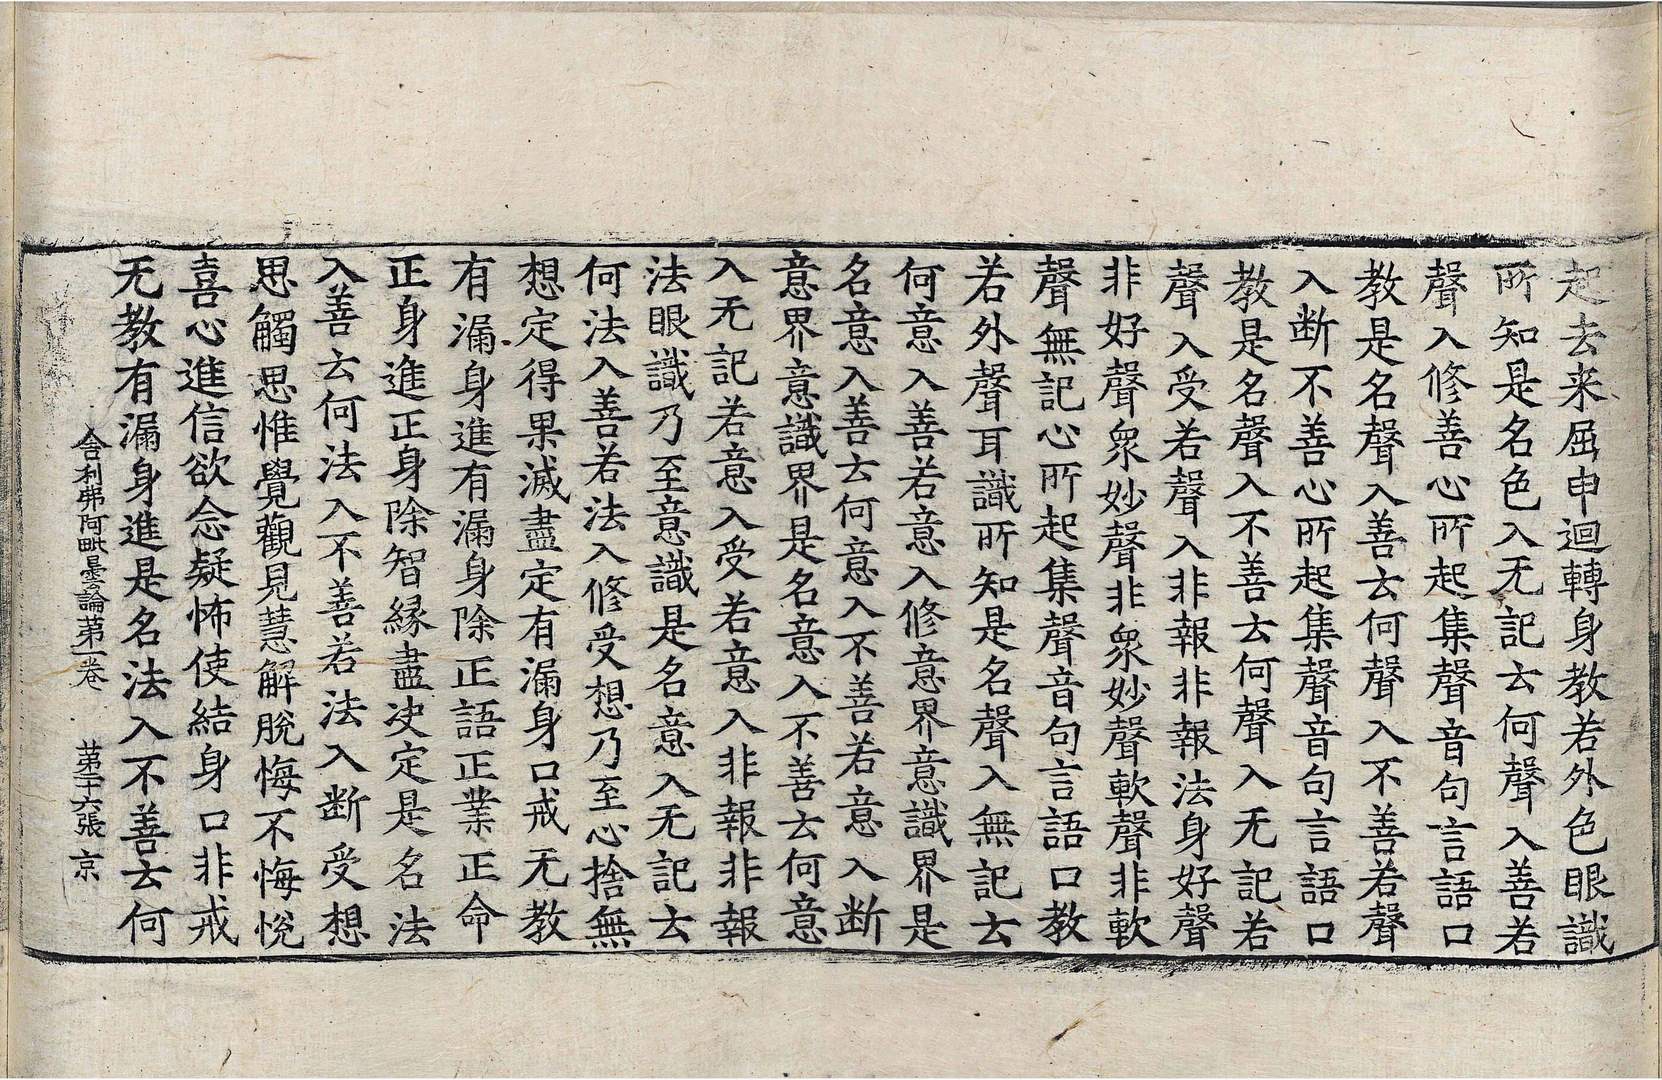 起去来屈申迴轉身教若外色眼識
所知是名色入无記云何聲入善若
聲入修善心所起集聲音句言語口
教是名聲入善云何聲入不善若聲
入断不善心所起集聲音句言語口
教是名聲入不善云何聲入无記若
聲入受若聲入非報非報法身好聲
非好聲衆妙聲非衆妙聲軟聲非軟
聲無記心所起集聲音句言語口教
若外聲耳識所知是名聲入無記云
何意入善若意入修意界意識界是
名意入善云何意入不善若意入断
意界意識界是名意入不善云何意
入无記若意入受若意入非報非報
法眼識乃至意識是名意入无記云
何法入善若法入修受想乃至心捨無
想定得果滅盡定有漏身口戒无教
有漏身進有漏身除正語正業正命
正身進正身除智縁盡决定是名法
入善云何法入不善若法入断受想
思觸思惟覺觀見慧解脫悔不悔悅
喜心進信欲念疑怖使結身口非戒
无教有漏身進是名法入不善云何
舍利弗阿毗曇論第一卷 第二十六張 京